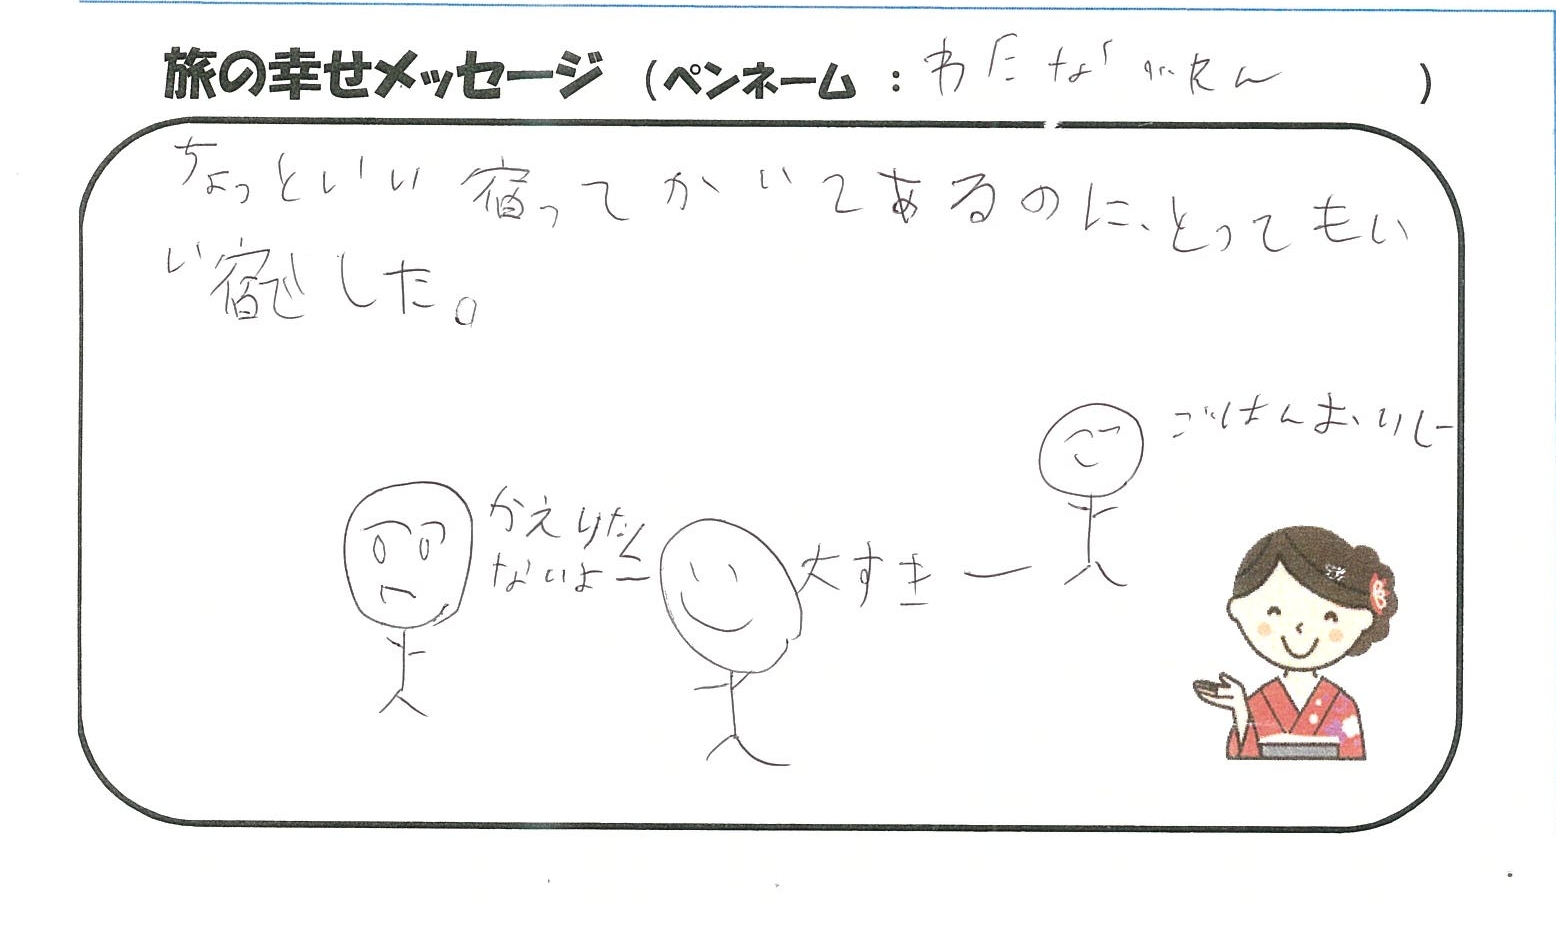 旅の幸せメッセージ (ペンネーム : )
ちょっといい宿ってかいてあるのに、とってもい
い宿でした。
ごはんおいしー
かえりたく
ないよー
大すきー